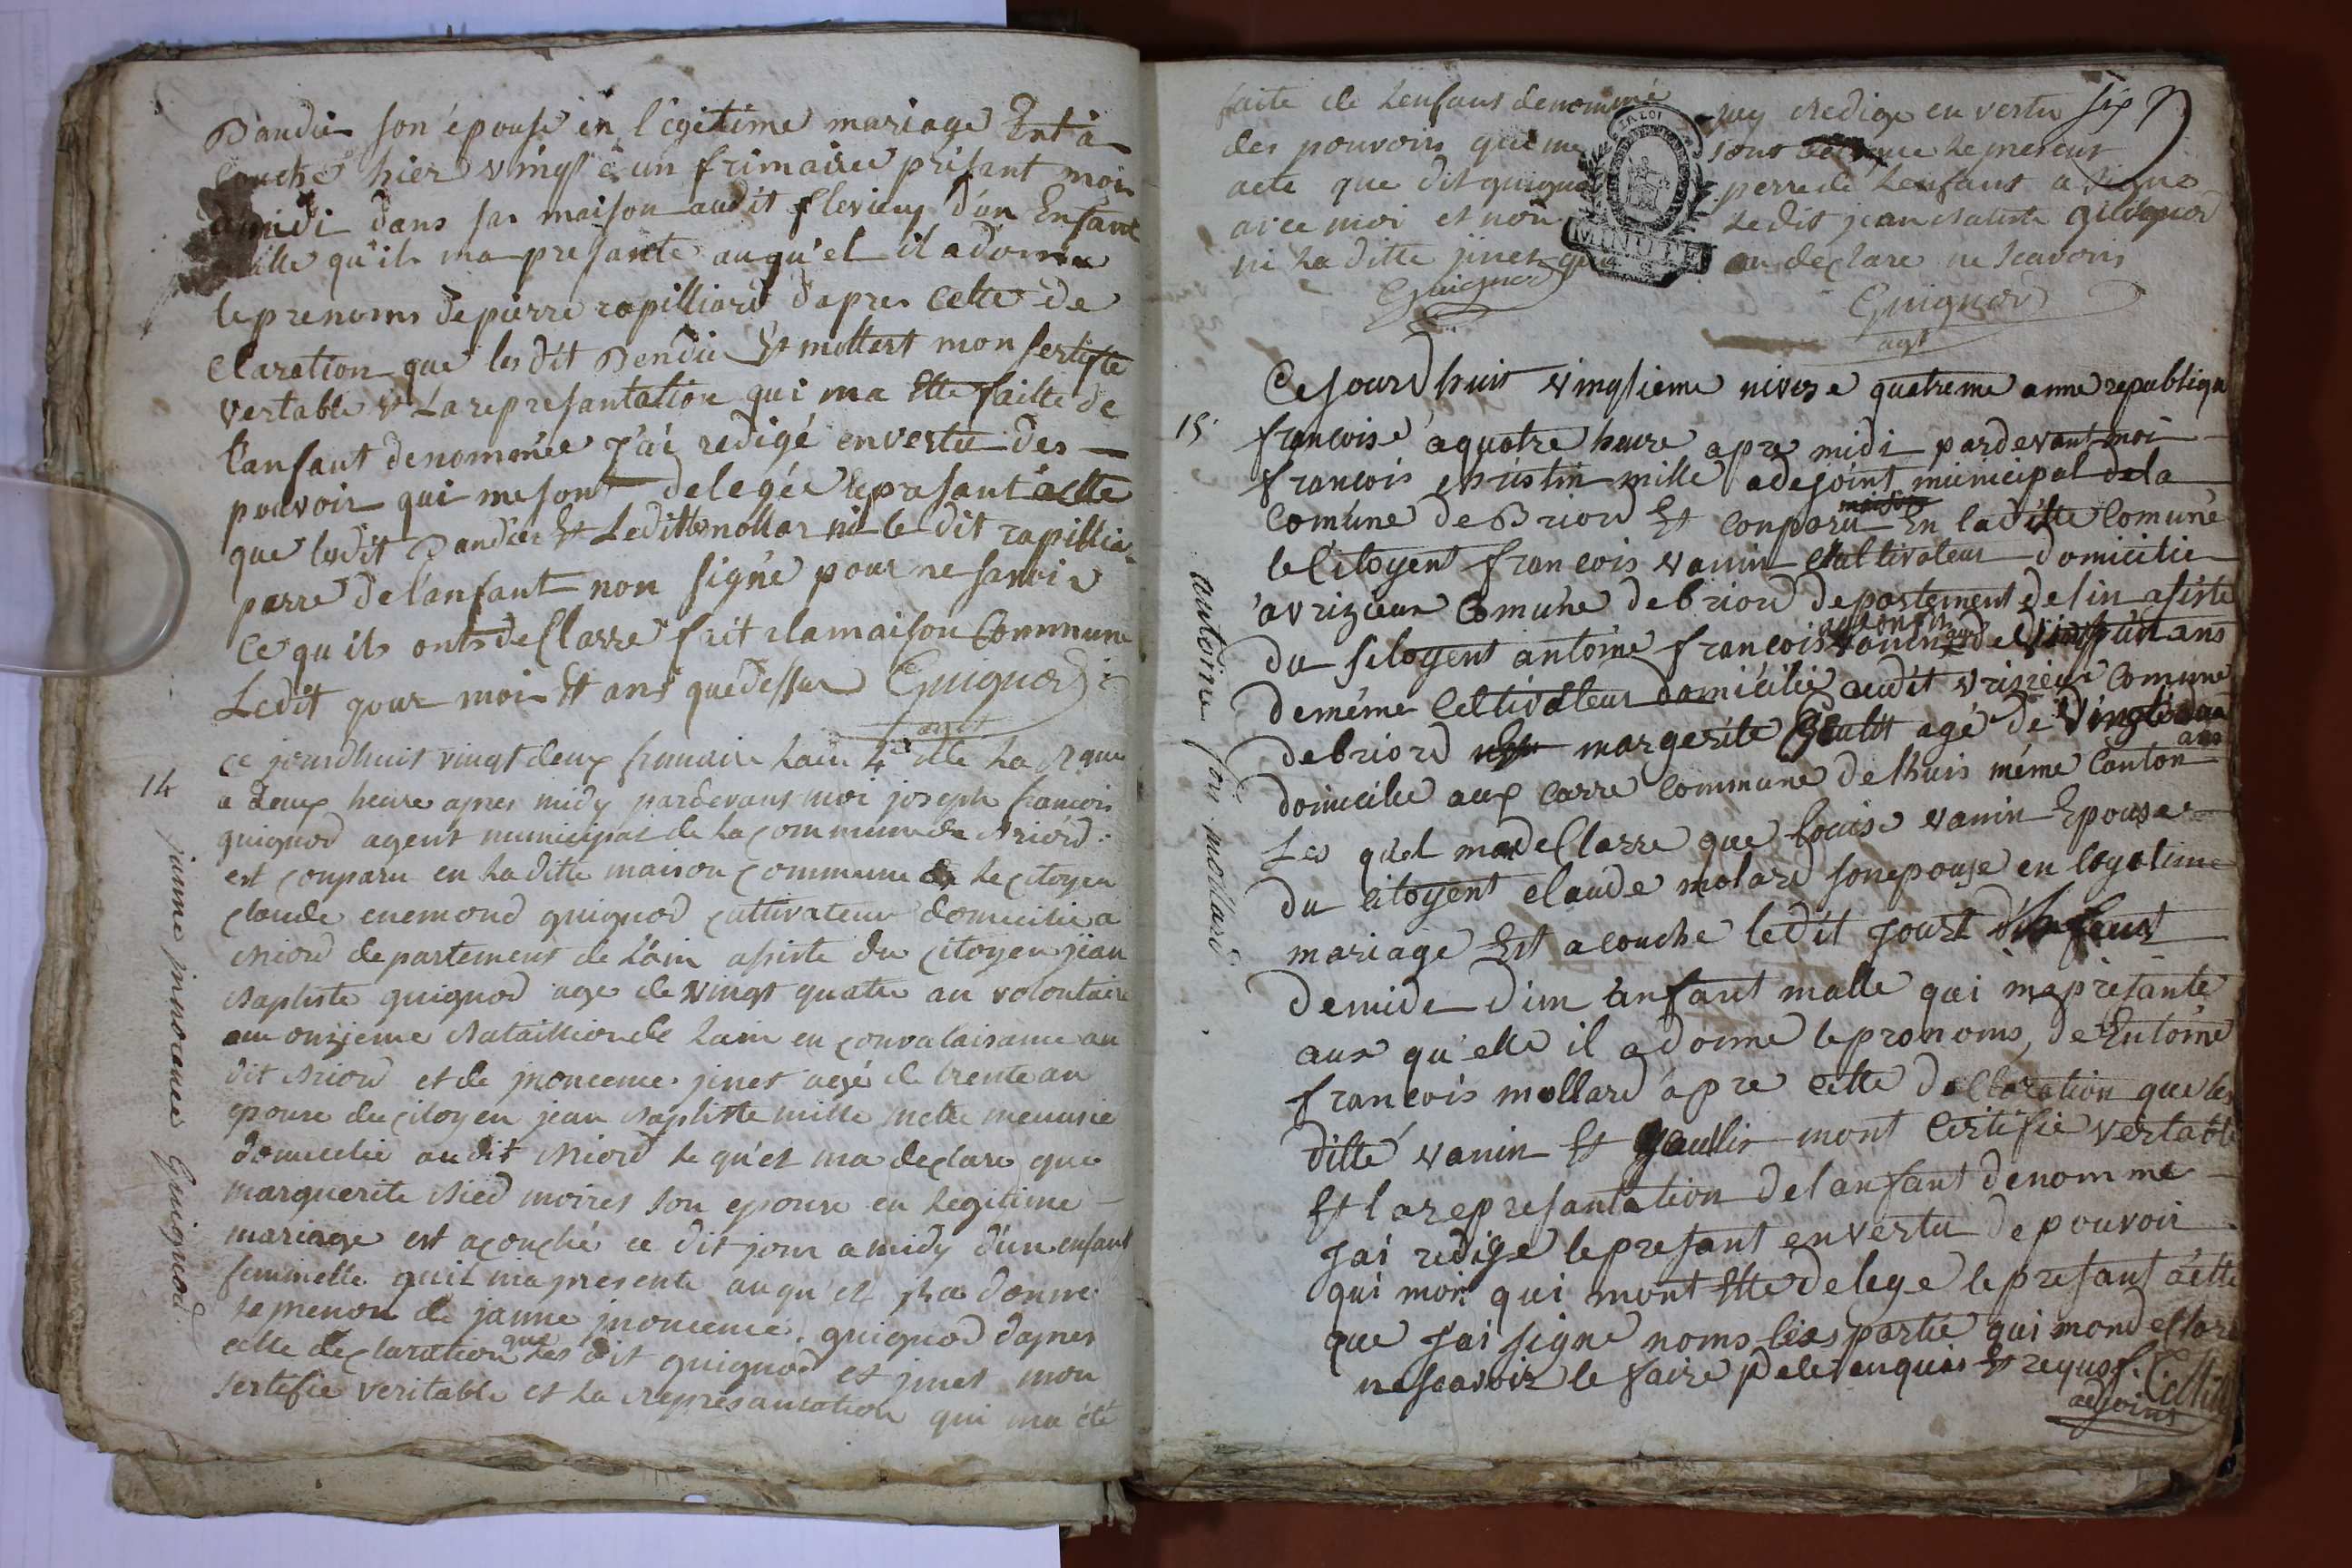 Dandier son épouse en légitime mariage Est à
couché hier vingt é un frimaire présant mois
a midi dans sa maison audit flevieu d'un Enfant
malle qu'ils ma presante auqu'el il adonné
le prenoms de pierre rapilliard d'apres cette dé
Claration que les dit Dendier Et mollart mon sertifie
vertable Et La represantation qui ma Ette faitte de
l'anfant denommée J'ai redigé envertu des
pouvoir qui me sont delegée le presant actte
que ledit Dandier Et Leditte mollar ni le dit rapillia
perre de l'anfant non signé pour ne savoir
Ce qu'ils onts de Clarre frit a la maison Commune
Ledit jour moi Et ans que dessus Guignod
agt
14
ce jourdhuit vingt deux frimaire Lan 4e de La Rque
a deux heure apres midy pardevant moi joseph francois
guignod agent municipal de La commune de Briord
est conparu en La ditte maison commune Le citoyen
claude enemond guignod cultivateur domicilié a
Briord departement de L'ain asiste du citoyen jean
Baptiste guignod age de vingt quatre an volontaire
au onzieme Bataillion de Lain en convalaisance au
dit Briord et de jnoncence jinet agé de trente an
epouse du citoyen jean Baptiste mille metre menusie
domicilié audit Briord le qu'el ma declare que
marguerite Bied moires son epouse en Legitime
mariage est acouché ce dit jour a midy d'un enfant
feminelle quil ma presenté auqu'el jl a donné
le prenon de janne jnoncence guignod d'apres
cette declaration que les dit guignod et jinet mon
sertifié veritable et La represantation qui ma été
janne jnorance Guignod
faite de Lenfant denommé jay Redige en vertu six
des pouvoirs qui me sont Le present
acte que dit guignod perre de Lenfant a signe
avec moi et non Ledit jean Batiste guignod
ni La ditte jinet qui on declare ne scavoir
Guignod Guignod
agt
LA LOI
MINUTE
15
Ce jourd huit vingtieme nivose quatreme anne republique
francoise a quatre heure apre midi pardevant moi
francois cristin mille adejoint municipal de la
Comune de Briord Et conparu maison En laditte Comune
le Citoyent francois vanin Cultivateur domicilie
a vrizieux Comune de briord departement de lin asiste
du sitoyent antoine francois vanin de vingt un ans
de méme Celtivateur domicilié audit vrisieu Comune
de briord margerite Gaulit agé de vingt deux ans
domicilie aux carre commune de lhuis méme Canton
Les quel mon de Clarre que louise vanin Epouse
du citoyent claude molard son epouse en legetime
mariage Est acouche ledit Jourt
demide d'un anfant malle qui ma presanté
aux qu'elle il adonne le pronoms de Entoine
francois mollard apre cette declaration que les
ditte vanin Et gaullir mont Certifie vertable
Et la represantation de lanfant denomme
Jai redige le presant en vertu de pouvoir
qui moi qui mont Ette delege le presant actte
que Jai signe noms les partie qui mon declare
ne scavoir le faire de le enquis Et requis f. C. Mille
adjoint
antoine fois mollard